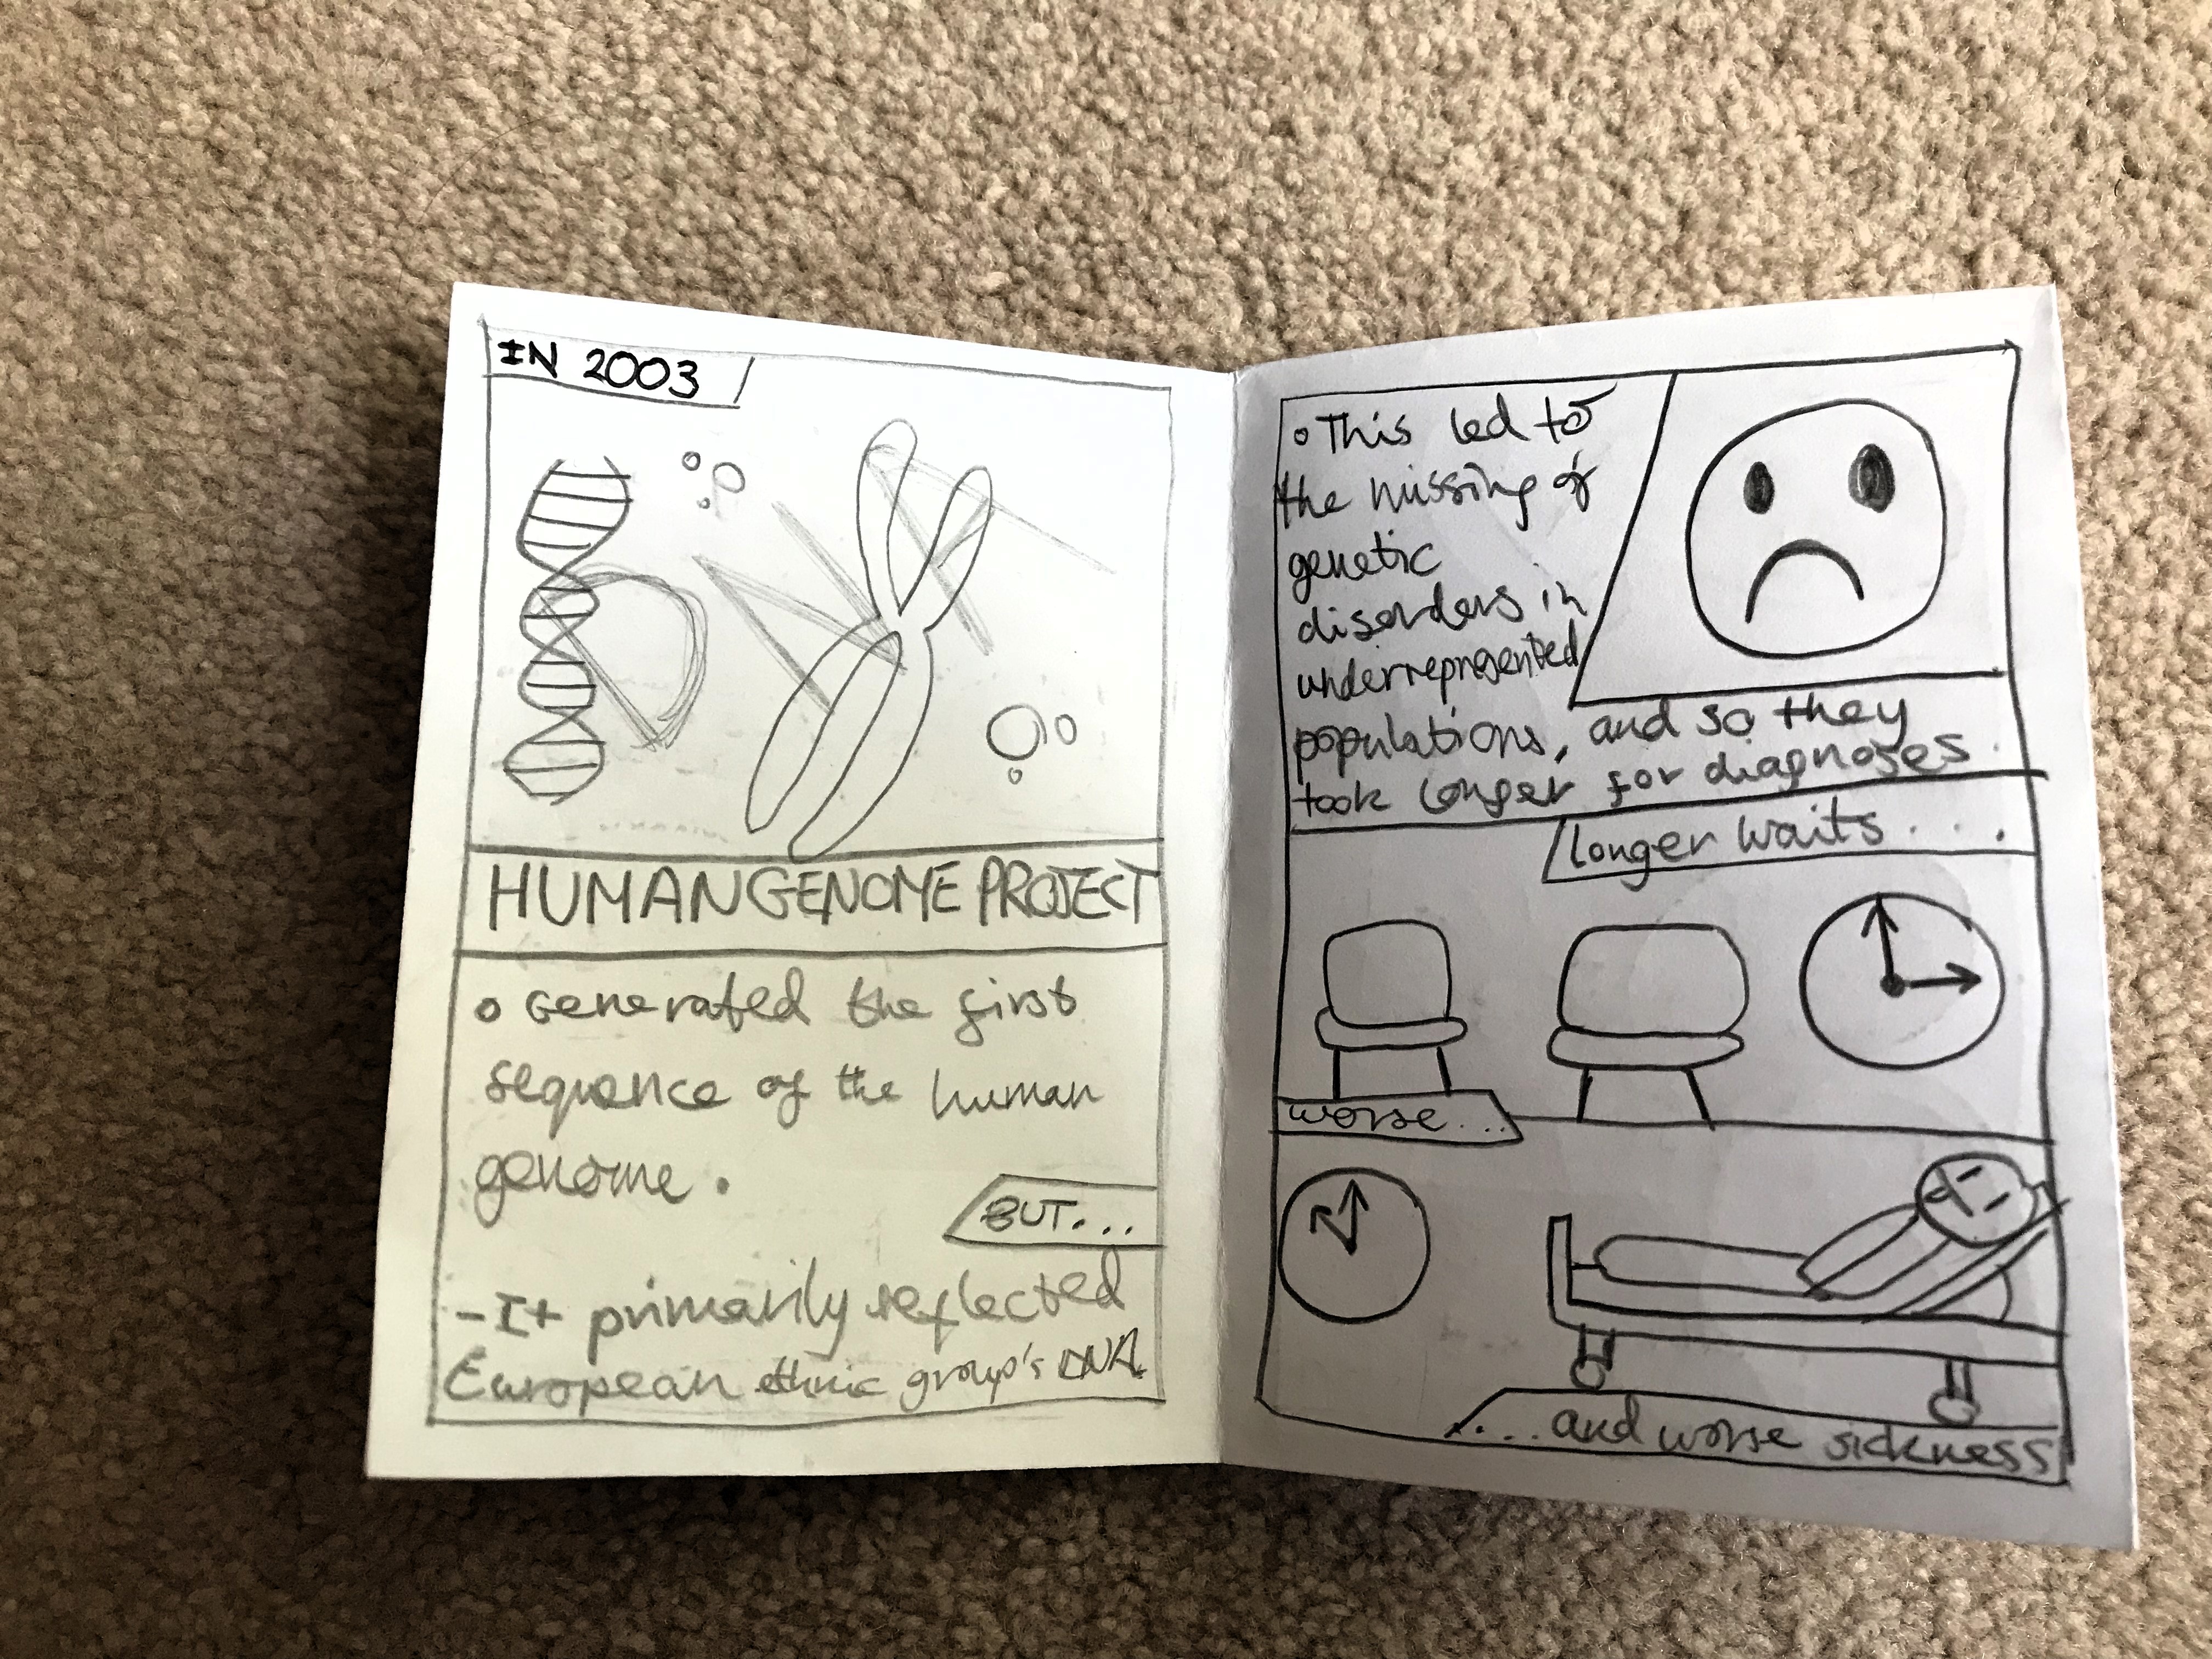 IN 2003
HUMAN GENOME PROJECT
o Generated the first
sequence of the human
genome.
BUT...
- It primarily reflected
European ethnic group's DNA
o This led to
the missing of
genetic
disorders in
underrepresented
populations, and so they
took longer for diagnoses.
longer waits....
worse...
....and worse sickness